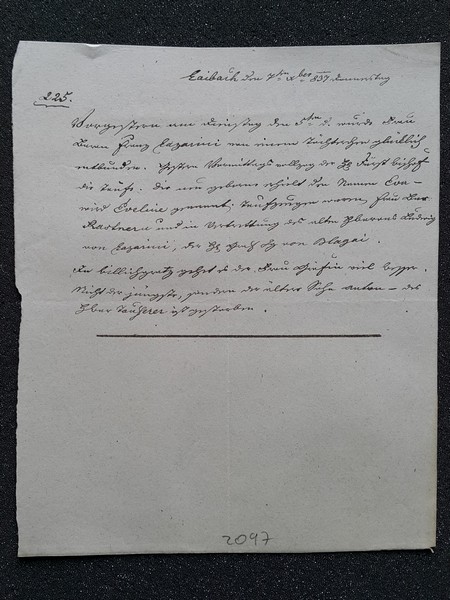 Laibach den 7ten Xber 837 Donnerstag
225.
Vorgestern am Dienstag den 5ten d. wurde Frau
Baron Franz Lazarini von einem Töchterchen glücklich
entbunden. Gestern Vormittags vollzog der H. Fürst bischof
die Taufe. Die neu geborne erhielt den Namen Eva
wird Eveline genannt; Taufzeugen waren Frau Bar.
Rastern und in Vertrettung des alten Barons Ludwig
von Lazarini, der H. von Blagai.
In Billichgratz geht es der Frau Gräfin viel besser.
Nicht der jüngste, sondern der ältere Sohn Anton des
Herr Taufferer ist gestorben.
2097